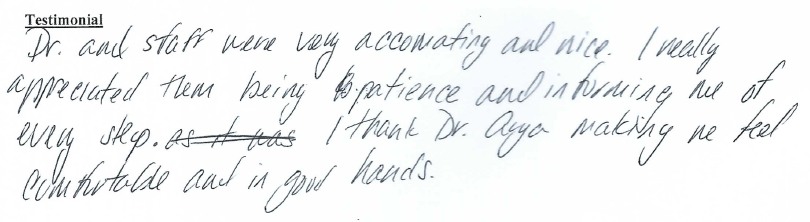 Testimonial
Dr. and staff were very accomating and nice. I really
appreciated them being patience and informing me of
every step. as it was I thank Dr. Ayya making me feel
comfortable and in good hands.